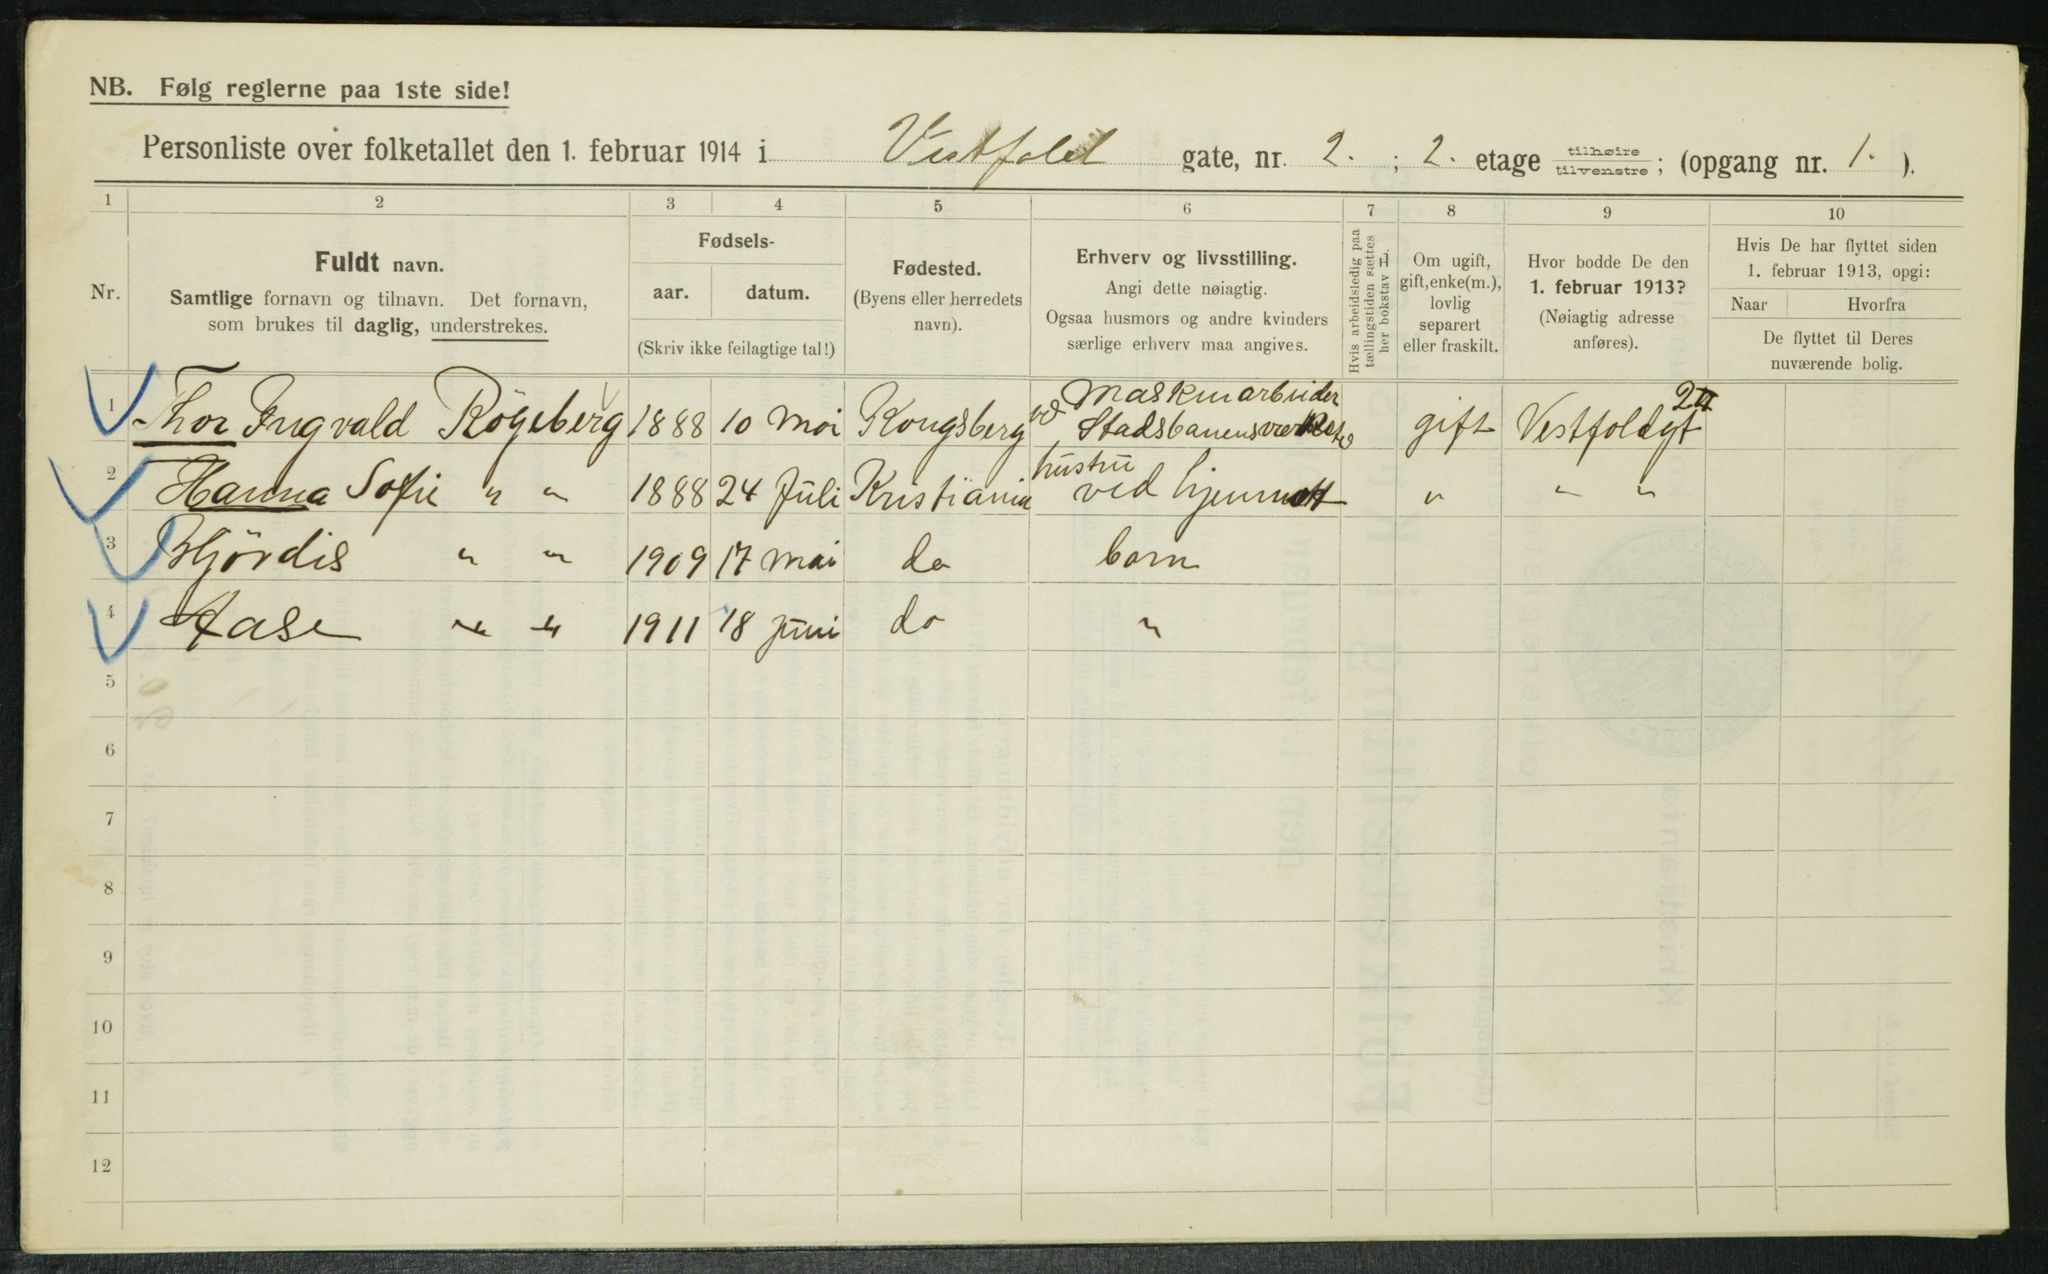 NB. Følg reglerne paa 1ste side!
Personliste over folketallet den 1. februar 1914 i Vestfold gate, nr. 2. ; 2. etage tilhøire / tilvenstre ; (opgang nr. 1. ).
1 2 3 4 5 6 7 8 9 10
Nr.
Fuldt navn.
Samtlige fornavn og tilnavn. Det fornavn,
som brukes til daglig, understrekes.
Fødsels-
aar. datum.
(Skriv ikke feilagtige tal!)
Fødested.
(Byens eller herredets
navn).
Erhverv og livsstilling.
Angi dette nøiagtig.
Ogsaa husmors og andre kvinders
særlige erhverv maa angives.
Hvis arbeidsledig paa
tællingstiden sættes
her bokstav L.
Om ugift,
gift, enke(m.),
lovlig
separert
eller fraskilt.
Hvor bodde De den
1. februar 1913?
(Nøiagtig adresse
anføres).
Hvis De har flyttet siden
1. februar 1913, opgi:
Naar Hvorfra
De flyttet til Deres
nuværende bolig.
1 Thor Ingvald Rögeberg 1888 10 Mai Kongsberg Maskinarbeider
ved Stadsbanens gift Vestfoldgt 2II
2 Hanna Sofie " " 1888 24 Juli Kristiania hustru
ved hjemmet " " "
3 Hjördis " " 1909 17 mai do barn
4 Aase " " 1911 18 juni do "
5
6
7
8
9
10
11
12